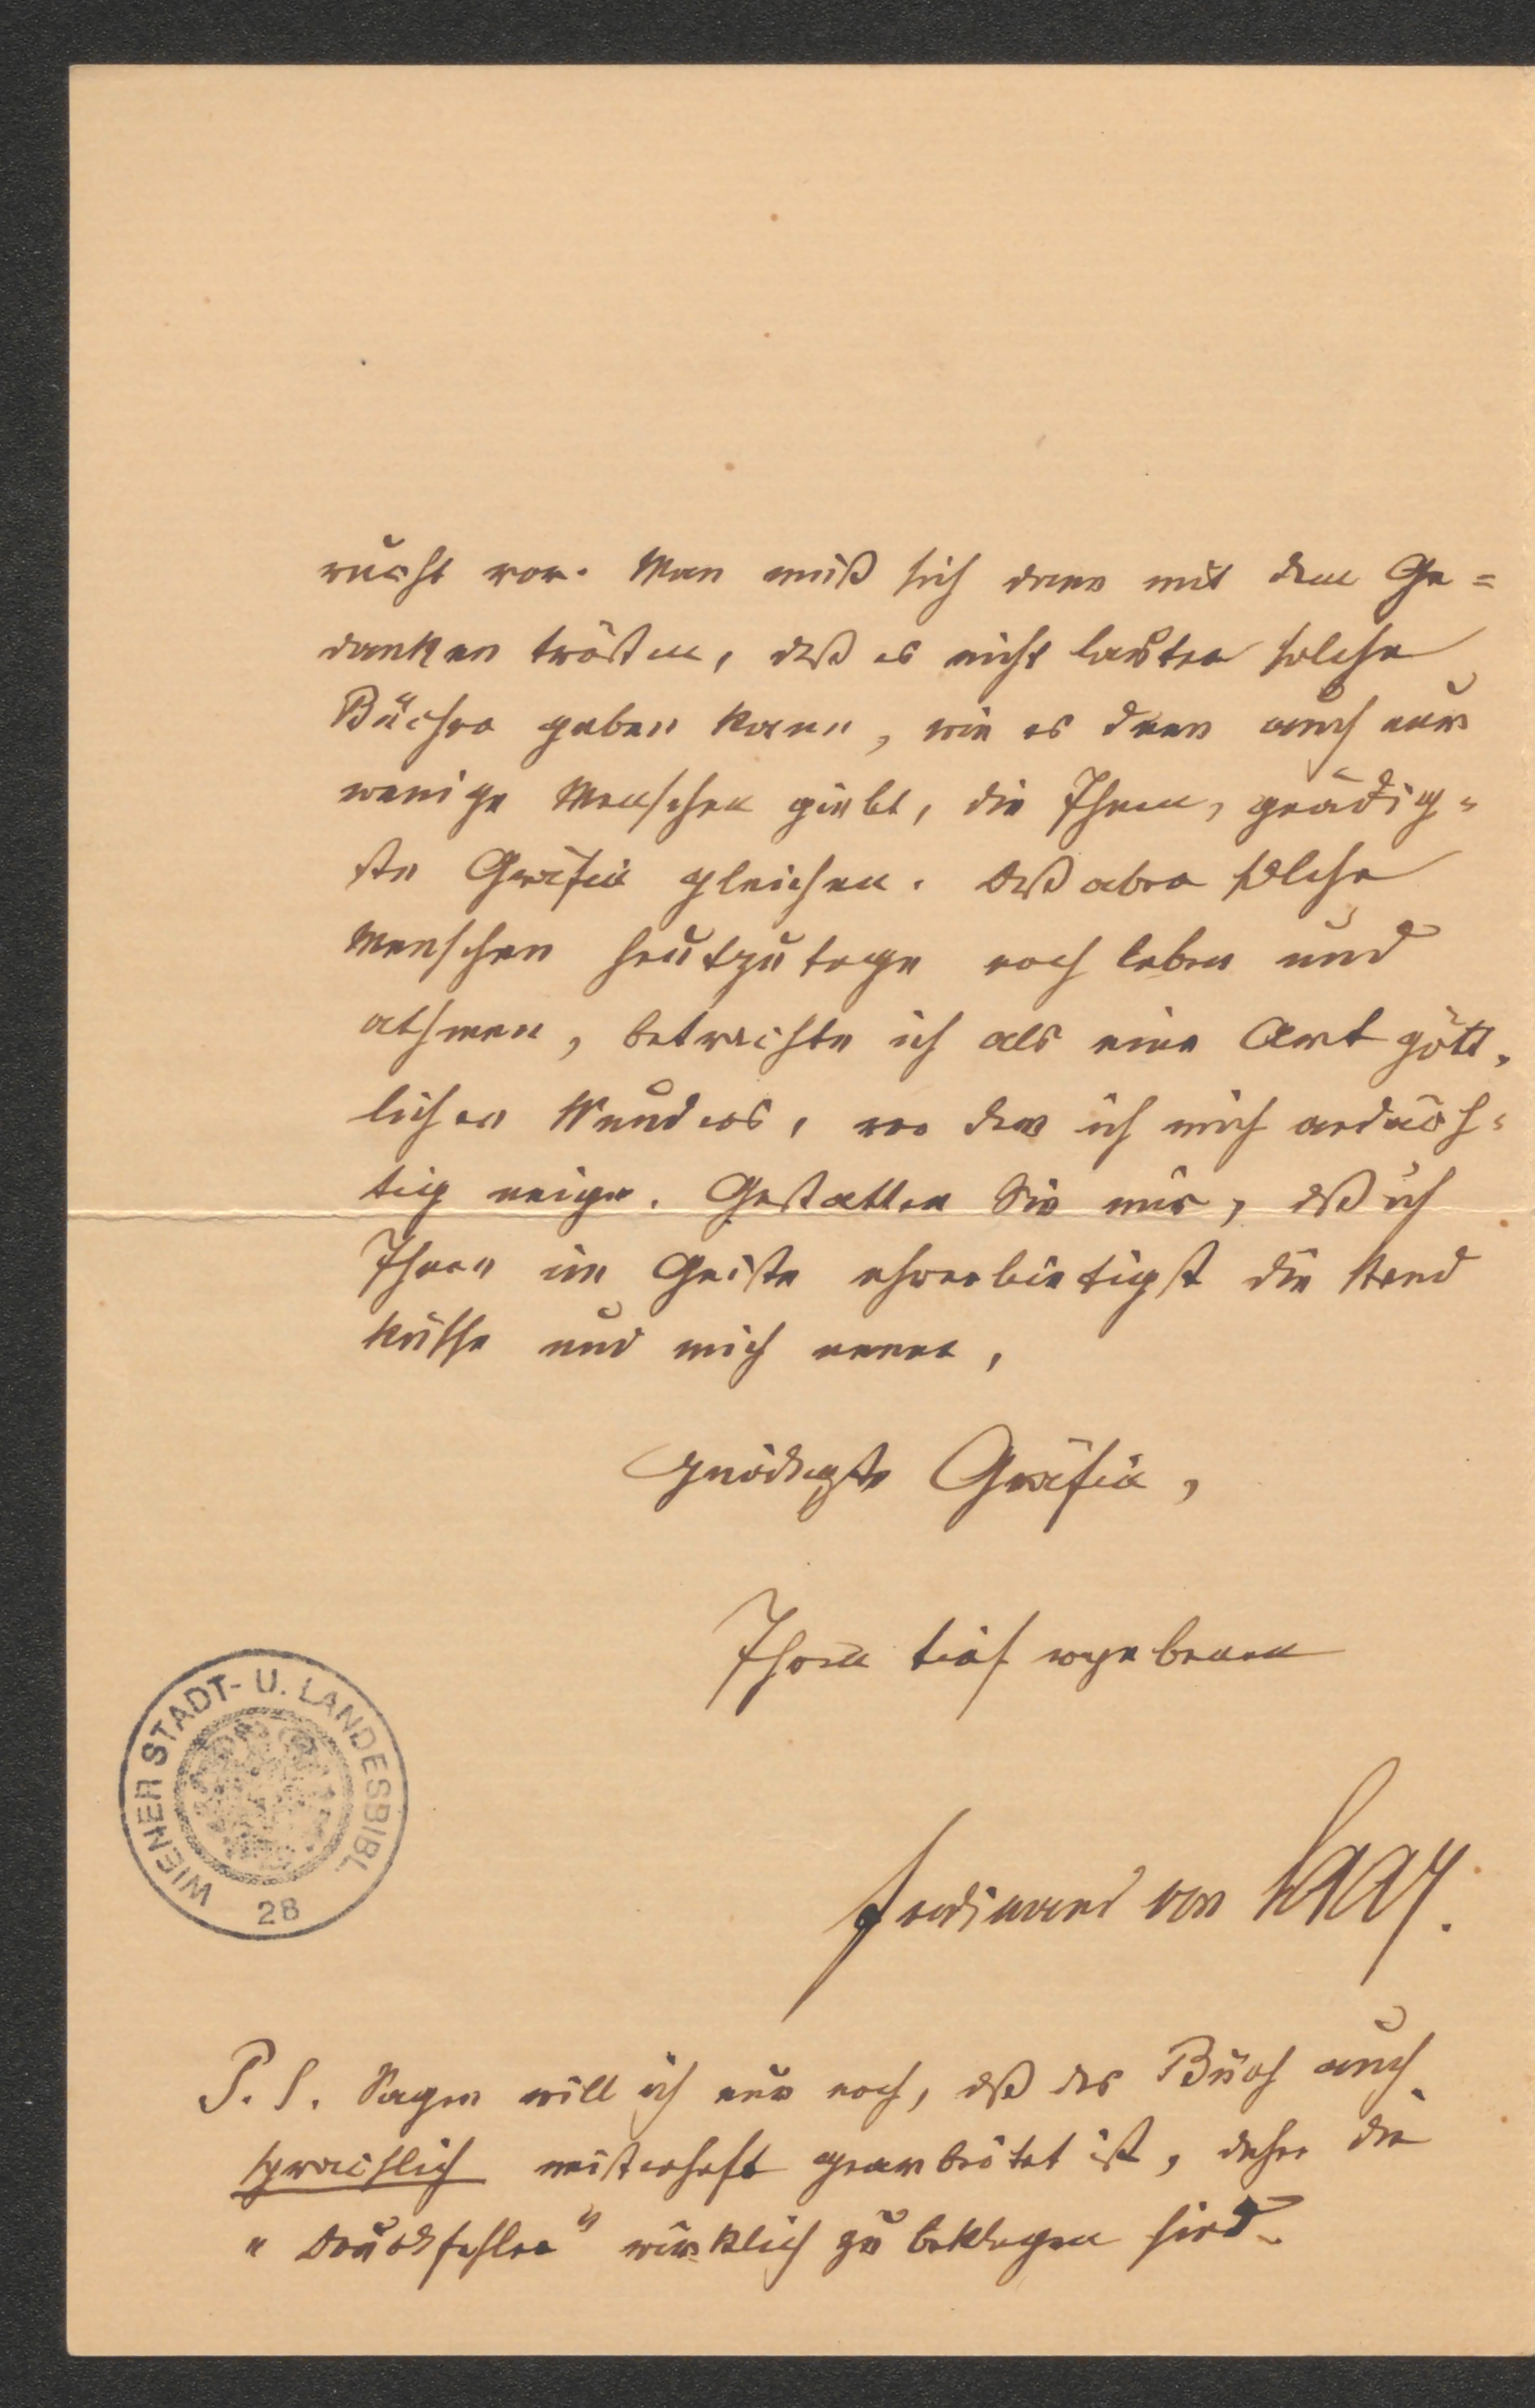 recht vor. Man muß sich dann mit dem Ge=
danken trösten, daß es nicht lauter solche
Bücher geben kann, wie es denn auch nur
wenige Menschen giebt, die Ihnen, gnädig=
ste Gräfin gleichen. Daß aber solche
Menschen heutzutage noch leben und
athmen, betrachte ich als eine Art gött=
lichen Wunders, vor dem ich mich andäch=
tig neige. Gestatten Sie mir, daß ich
Ihnen im Geiste ehrerbietigst die Hand
küsse und mich nenne,
Gnädigste Gräfin,
Ihren tief ergebenen
Ferdinand von Saar.
WIENER STADT- U. LANDESBIBL
28
P. S. Sagen will ich nur noch, daß das Buch auch
sprachlich meisterhaft gearbeitet ist, daher die
"Druckfehler" wirklich zu beklagen sind.